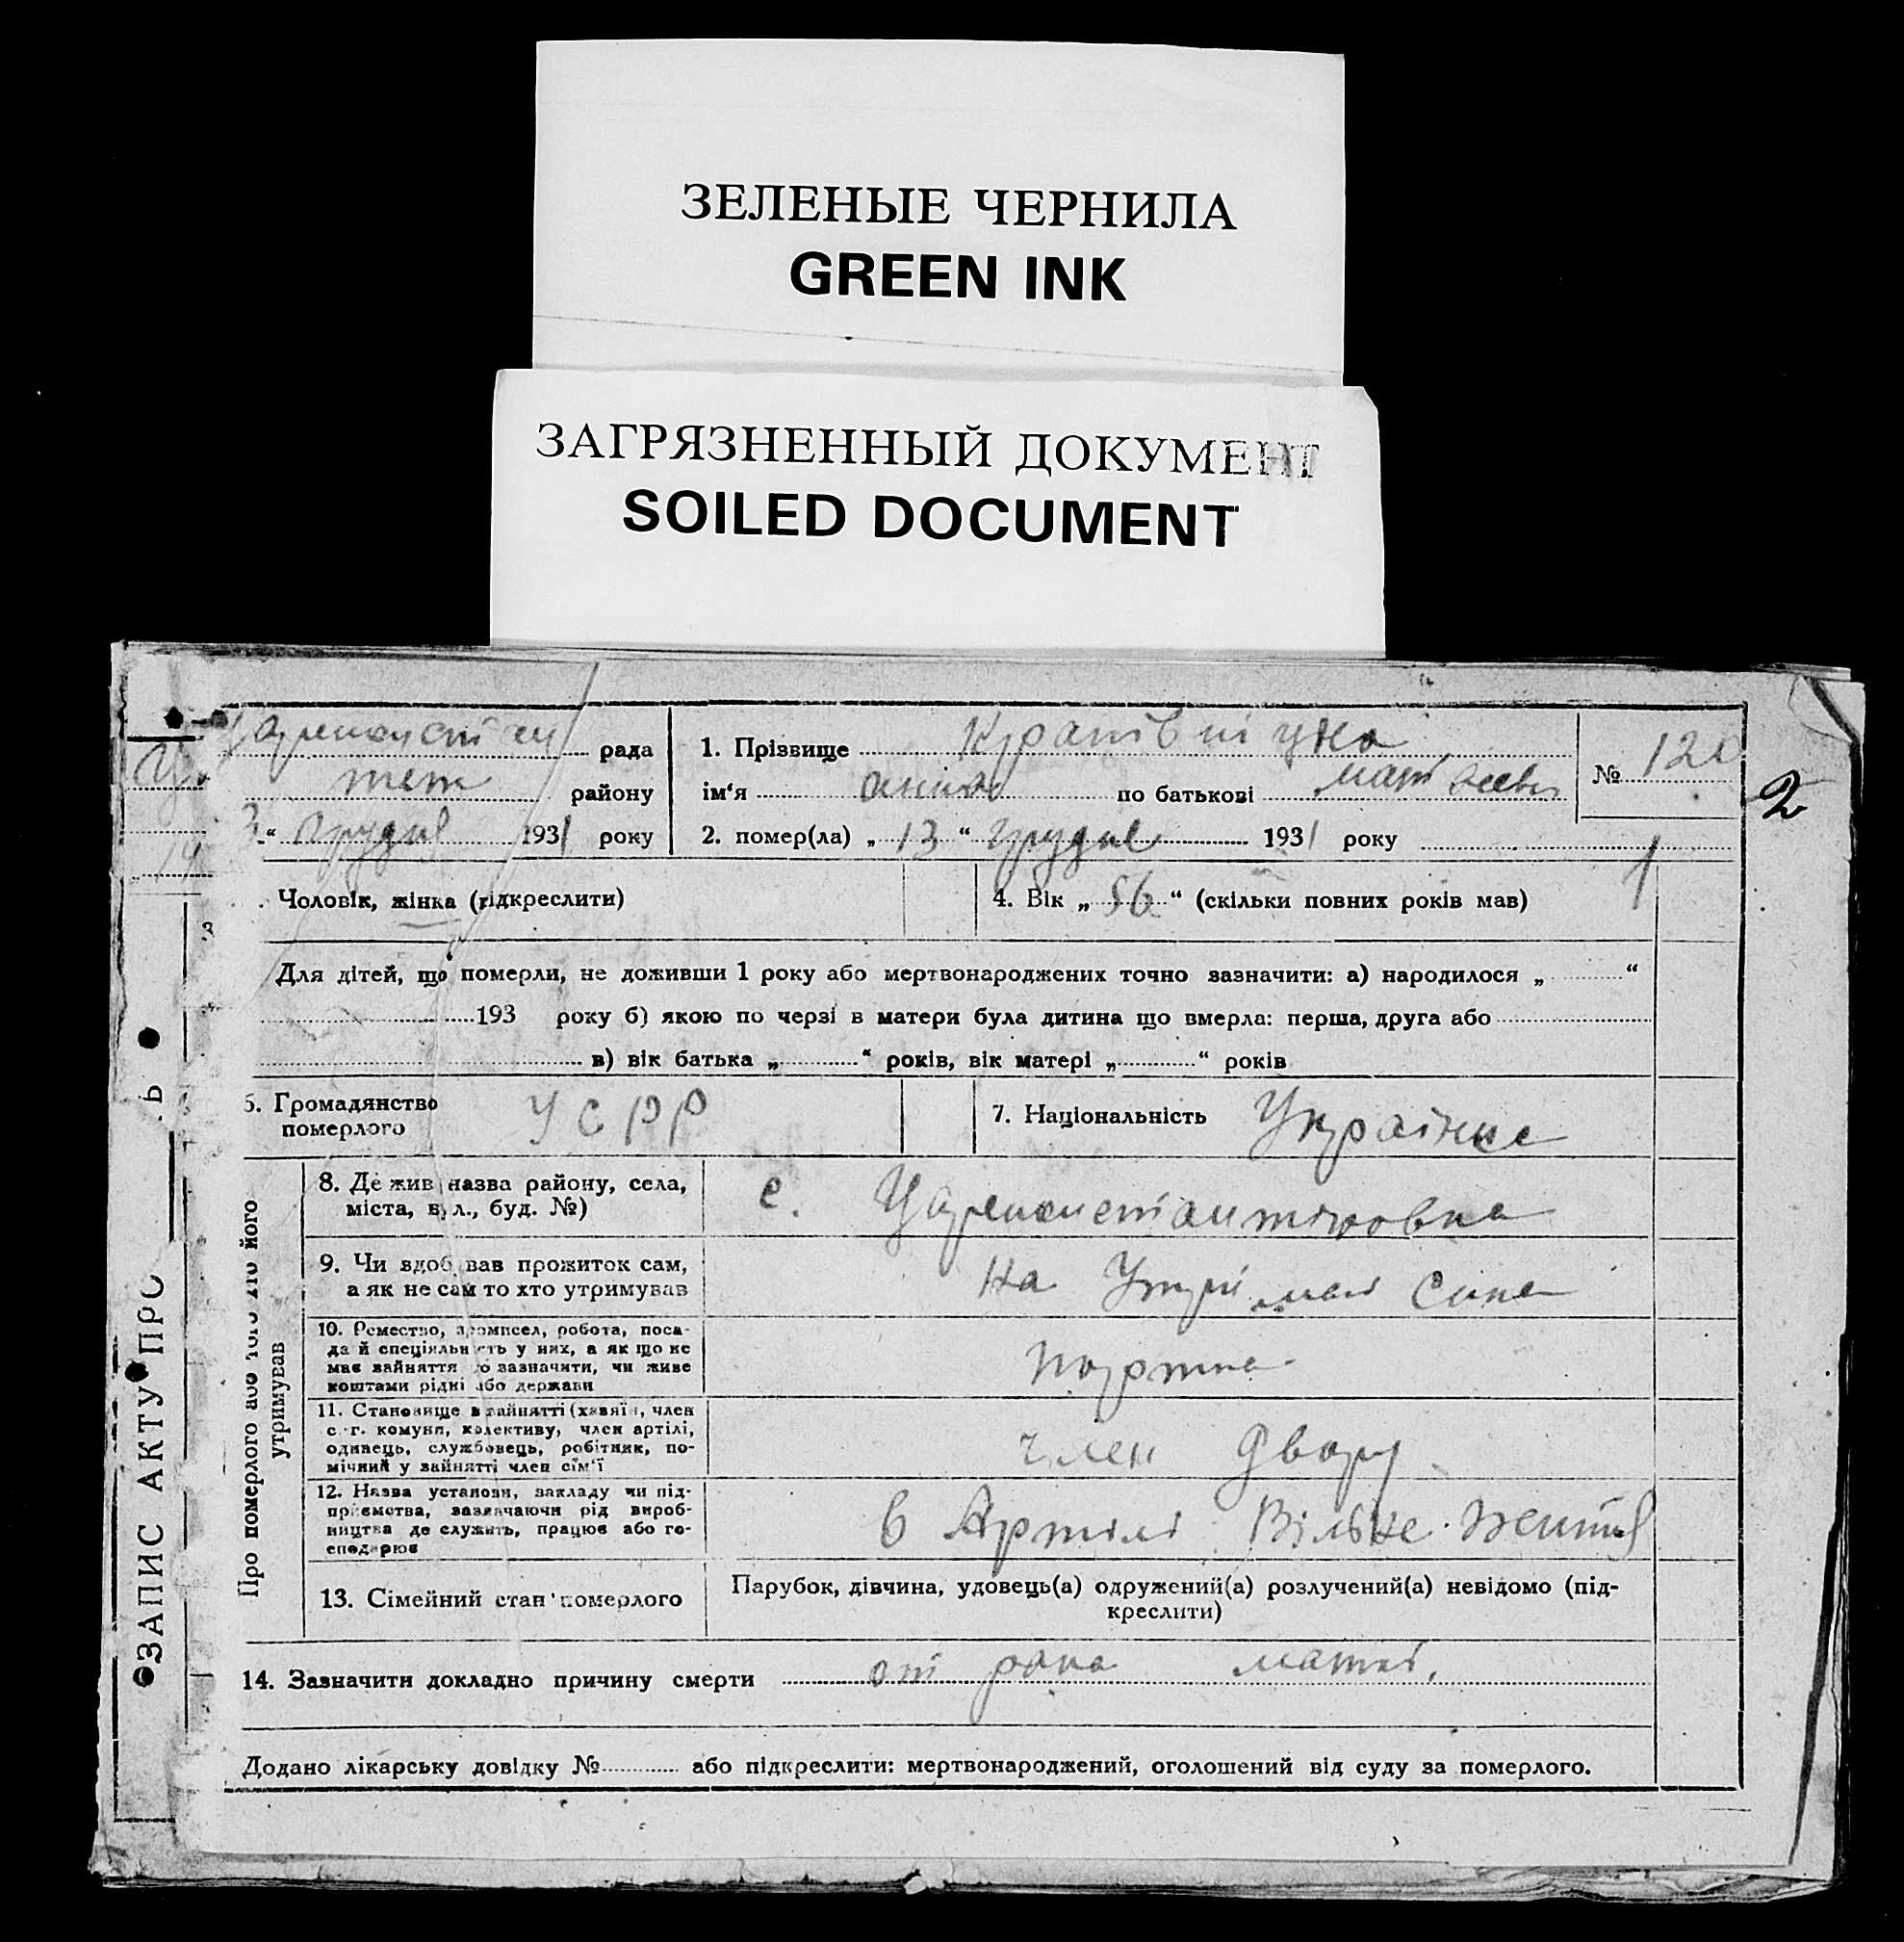 ЗЕЛЕНЫЕ ЧЕРНИЛА
GREEN INK
ЗАГРЯЗНЕННЫЙ ДОКУМЕНТ
SOILED DOCUMENT
рада
району
“ грудня 1931 року
1. Прізвище Кропівніцка
ім‘я анна по батькові матвеевн
2. помер(ла) „13“ грудня 1931 року
№ 120
2
1
Чоловік, жінка (підкреслити)
4. Вік „56“ (скільки повних років мав)
Для дітей, що померли, не доживши 1 року або мертвонароджених точно зазначити: а) народилося „ “
193 року б) якою по черзі в матери була дитина що вмерла: перша, друга або
в) вік батька „ “ років, вік матері „ “ років
6. Громадянство
померлого
УСРР
7. Національність Українка
Про померлого або того хто його
утримував
8. Де жив назва району, села,
міста, вул., буд. №)
с. Цареконстантиновка
9. Чи вдобував прожиток сам,
а як не сам то хто утримував
На Утрі мані Сина
10. Ремество, промисел, робота, поса-
да й спеціяльність у них, а як що не
має зайняття то зазначити, чи живе
коштами рідні або держави
11. Становище в зайнятті (хазяїн, член
с.-г. комуни, колективу, член артілі,
одинець, службовець, робітник, по-
мічний у зайнятті член сім‘ї
член двору
12. Назва установи, закладу чи під-
приємства, зазначаючи рід вироб-
ництва де служить, працює або го-
сподарює
в Артілі Вільне життя
13. Сімейний стан померлого
Парубок, дівчина, удовець(а) одружений(а) розлучений(а) невідомо (під-
креслити)
14. Зазначити докладно причину смерти от рака маткі,
Додано лікарську довідку № або підкреслити: мертвонароджений, оголошений від суду за померлого.
ЗАПИС АКТУ ПРО